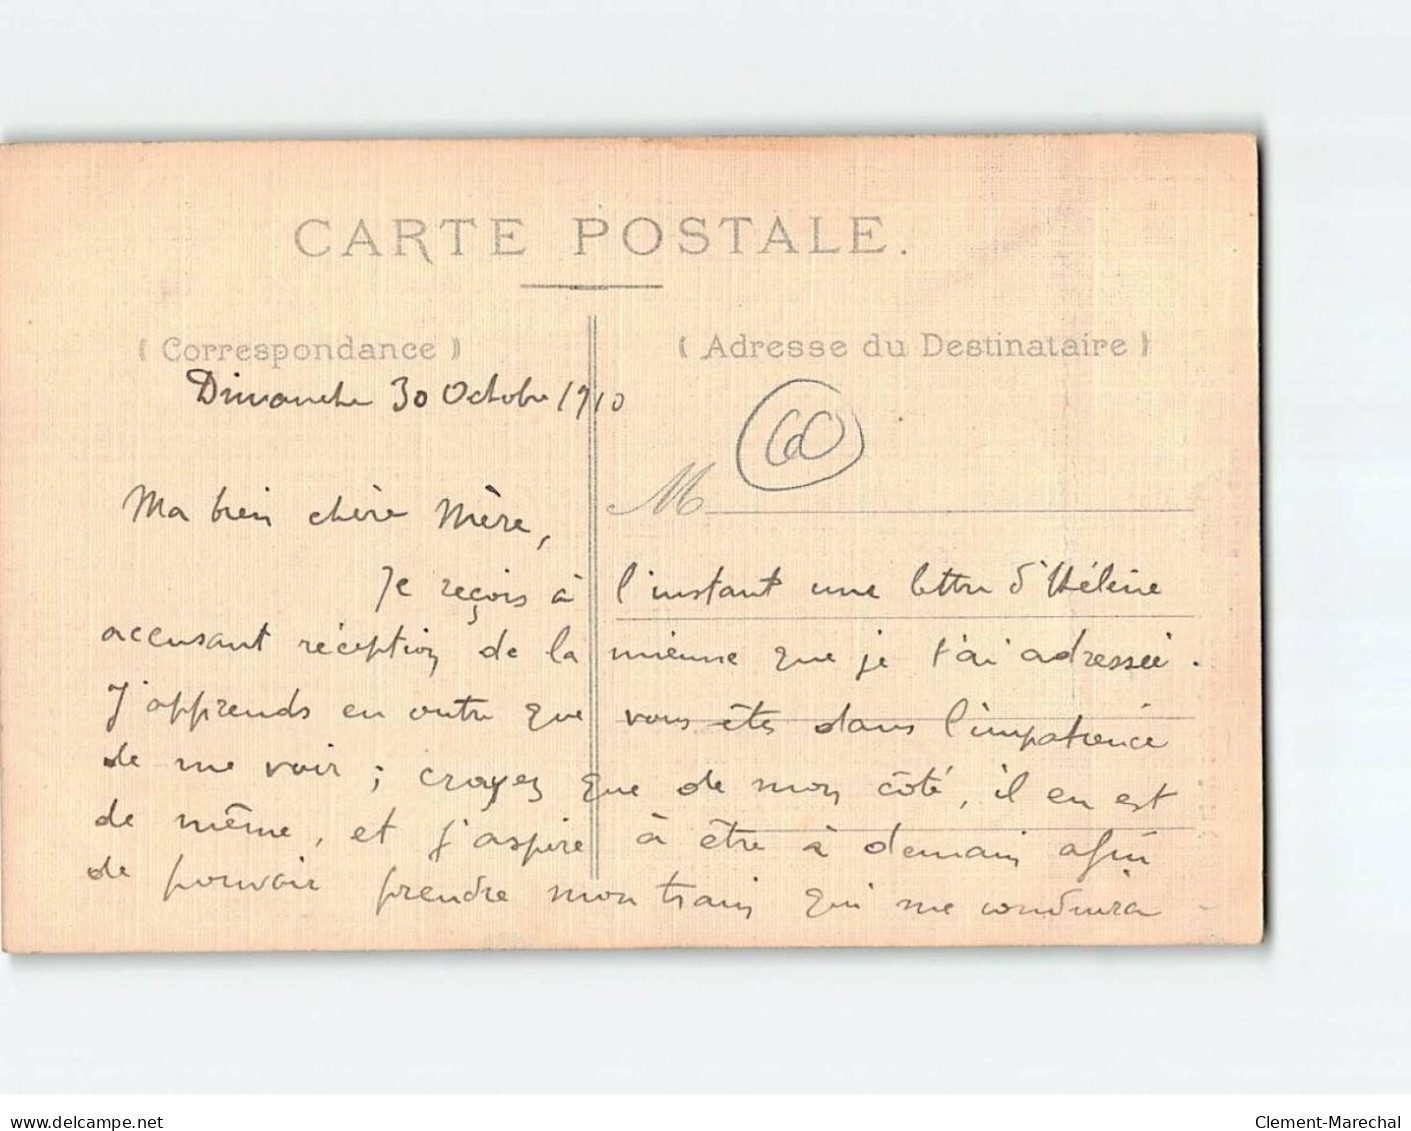 CARTE POSTALE.
( Correspondance )
( Adresse du Destinataire )
Dimanche 30 Octobre 1910
60
M
Ma bien chère Mère,
Je reçois à l'instant une lettre d'Hélène
accusant réception de la mienne que je t'ai adressée.
J'apprends en outre que vous êtes dans l'impatience
de me voir ; croyez que de mon côté, il en est
de même, et j'aspire à être à demain afin
de pouvoir prendre mon train qui me conduira
delcampe.net
Clement-Marechal